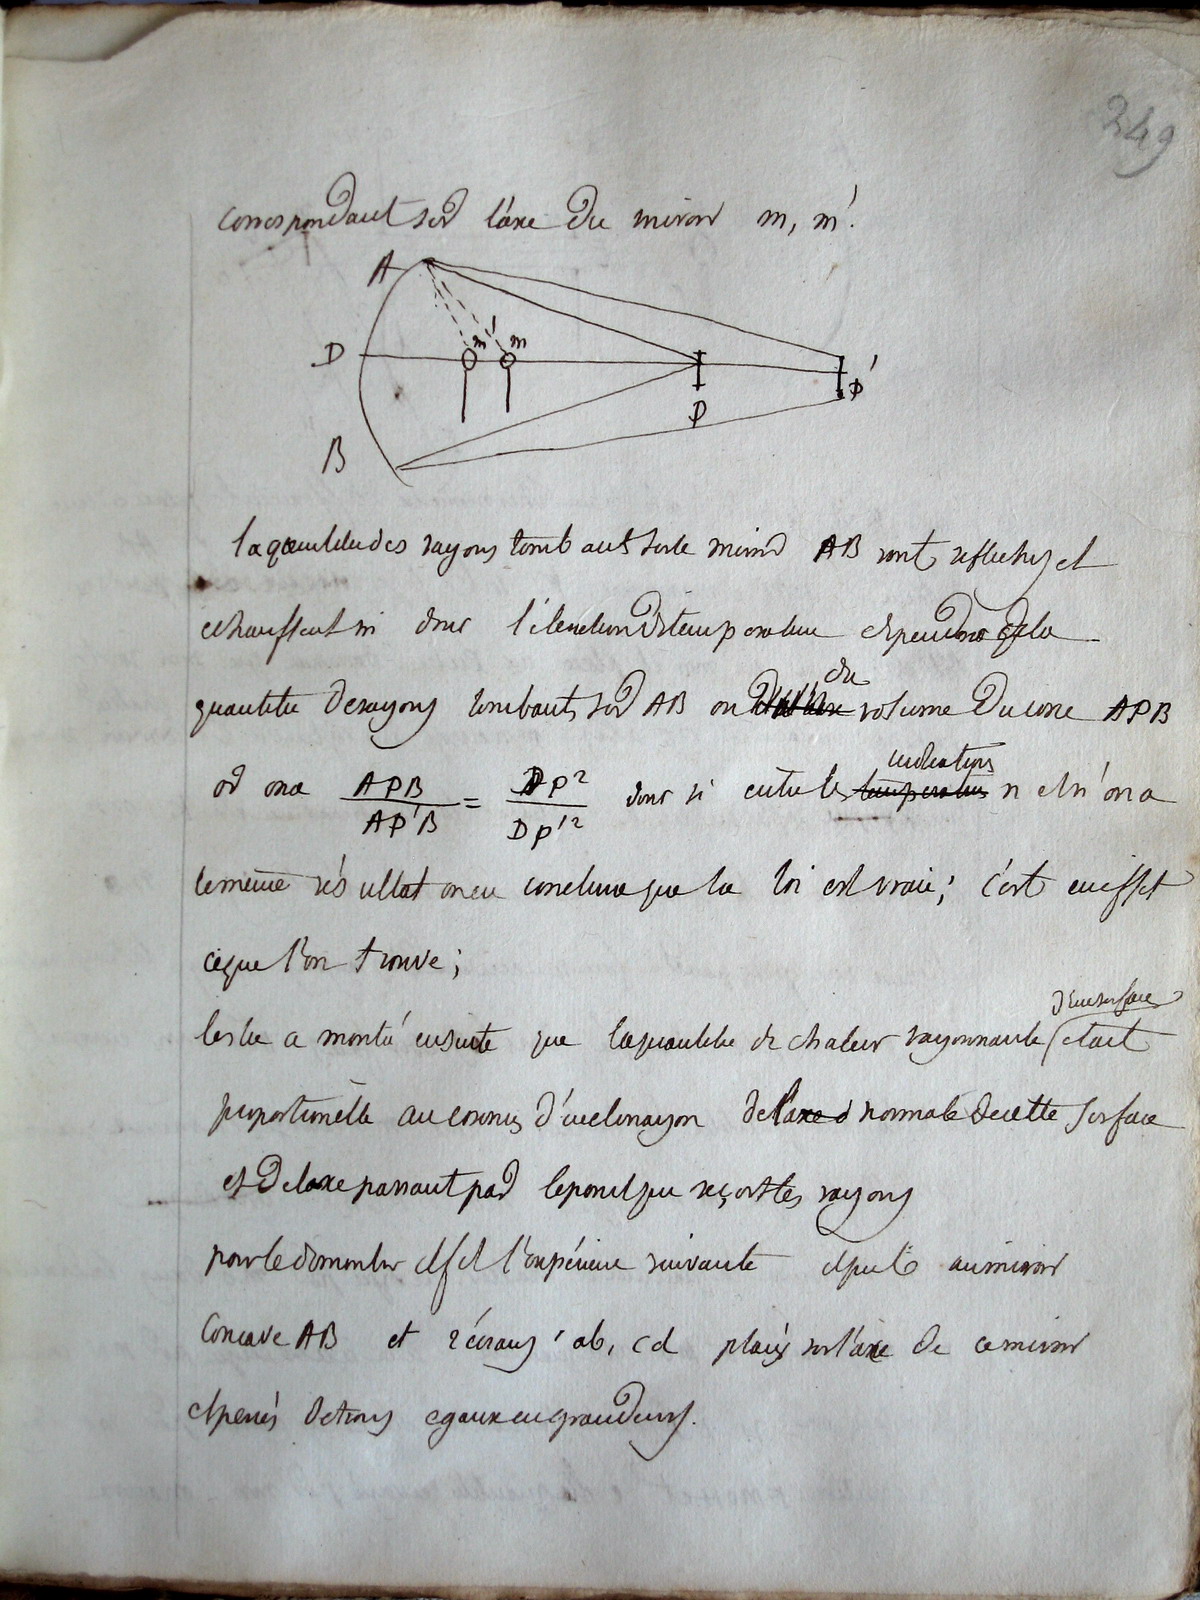 249
correspondant sur l'axe du miroir m, m'.
A
D m' m P P'
B
la quantité des rayons tombants sur le miroir AB sont reflechis et
echauffent m donc l'élévation de temperature dependra de la
quantité de rayons tombants sur AB ou du volume du cone APB
or on a APB/AP'B = DP²/DP'² donc si entre les temperatures indications n et n' on a
le meme résultat on en conclura que la loi est vraie; c'est en effet
ce que l'on trouve;
leslie a montré ensuite que la quantité de chaleur rayonnante d'une surface etait
proportionelle au cosinus d'inclinayon de l'axe d normale de cette surface
et de laxe passant par le point qui reçoit les rayons
pour le demontrer il fit l'expérience suivante il prit un miroir
concave AB et 2 écrans ab, cd placés sur l'axe de ce miroir
et percés de trous egaux en grandeurs.